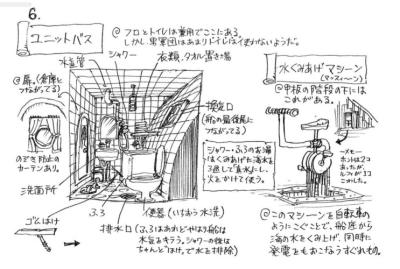 6.
ユニットバス
@ フロとトイレは兼用でここにある。
しかし、男軍団はあまりトイレは使わないようだ。
水道管
シャワー
衣類、タオル置き場
@ 扉。(倉庫と
つながってる)
のぞき防止の
カーテンあり。
洗面所
ゴムはけ
換気口
(船の最後尾に
つながってる)
シャワー・ふろのお湯
はくみあげた海水を
3過して"真水"にし、
火をかけて使う。
ふろ
便器(いちおう水洗)
排水口(ふろはあれどやはり船は
水気をキラう。シャワーの後は
ちゃんと"はけ"で水を排除)
水くみあげマシーン
(マッスィ〜ン)
@甲板の階段の下には
これがある。
〜メモ〜
ホントは2コ
あったが、
ルフィが1コ
こわした。
@このマシーンを自転車の
ようにこぐことで、船底から
海の水をくみ上げ、同時に
発電をもおこなうすぐれもの。